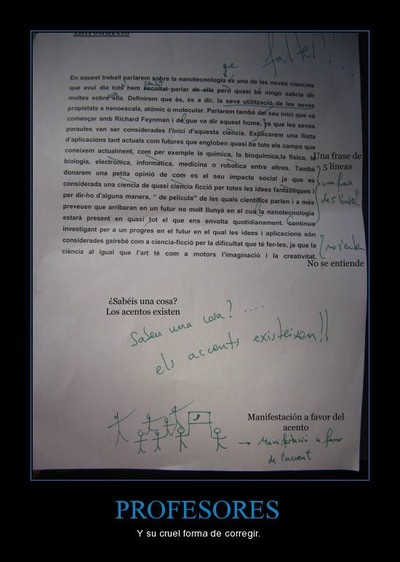 Introducció
que
faltes!!!
En aquest treball parlarem sobre la nanotecnologia és una de les noves ciencies
que avui dia tots hem escoltat parlar de ella però quasi bé ningú sabria dir
moltes sobre ella. Definirem que és, és a dir, la seva utilització de les seves
propietats a nanoescala, atòmic o molecular. Parlarem també del seu inici que va
començar amb Richard Feynman i de que va dir aquest home, ja que les seves
paraules van ser considerades l'inici d'aquesta ciència. Explicarem una llista
d'aplicacions tant actuals com futures que engloben quasi bé tots els camps que
coneixem actualment, com per exemple la química, la bioquímica,la física, la
biologia, electrònica, informatica, medicina o robòtica entre altres. Tambe
donarem una petita opinió de com es el seu impacte social ja que es
considerada una ciencia de quasi ciencia ficció per totes les idees fantastiques i
per dir-ho d'alguna manera, " de película" de les quals cientifics parlen i a més
preveuen que arribaran en un futur no molt llunyà en el cual la nanotecnologia
estarà present en quasi tot el que ens envolta quotidianament, continua
investigant per a un progres en el futur en el qual les idees i aplicacions són
considerades gairebé com a ciencia-ficció per la dificultat que té fer-les, ja que la
ciència al igual que l'art té com a motors l'imaginació i la creativitat.
Una frase de
5 líneas
una frase
de 5 línies
No se entiende
¿Sabéis una cosa?
Los acentos existen
Sabeu una cosa? ....
els accents existeixen!!
Manifestación a favor del
acento
→ Manifestació a favor
de l'accent
PROFESORES
Y su cruel forma de corregir.